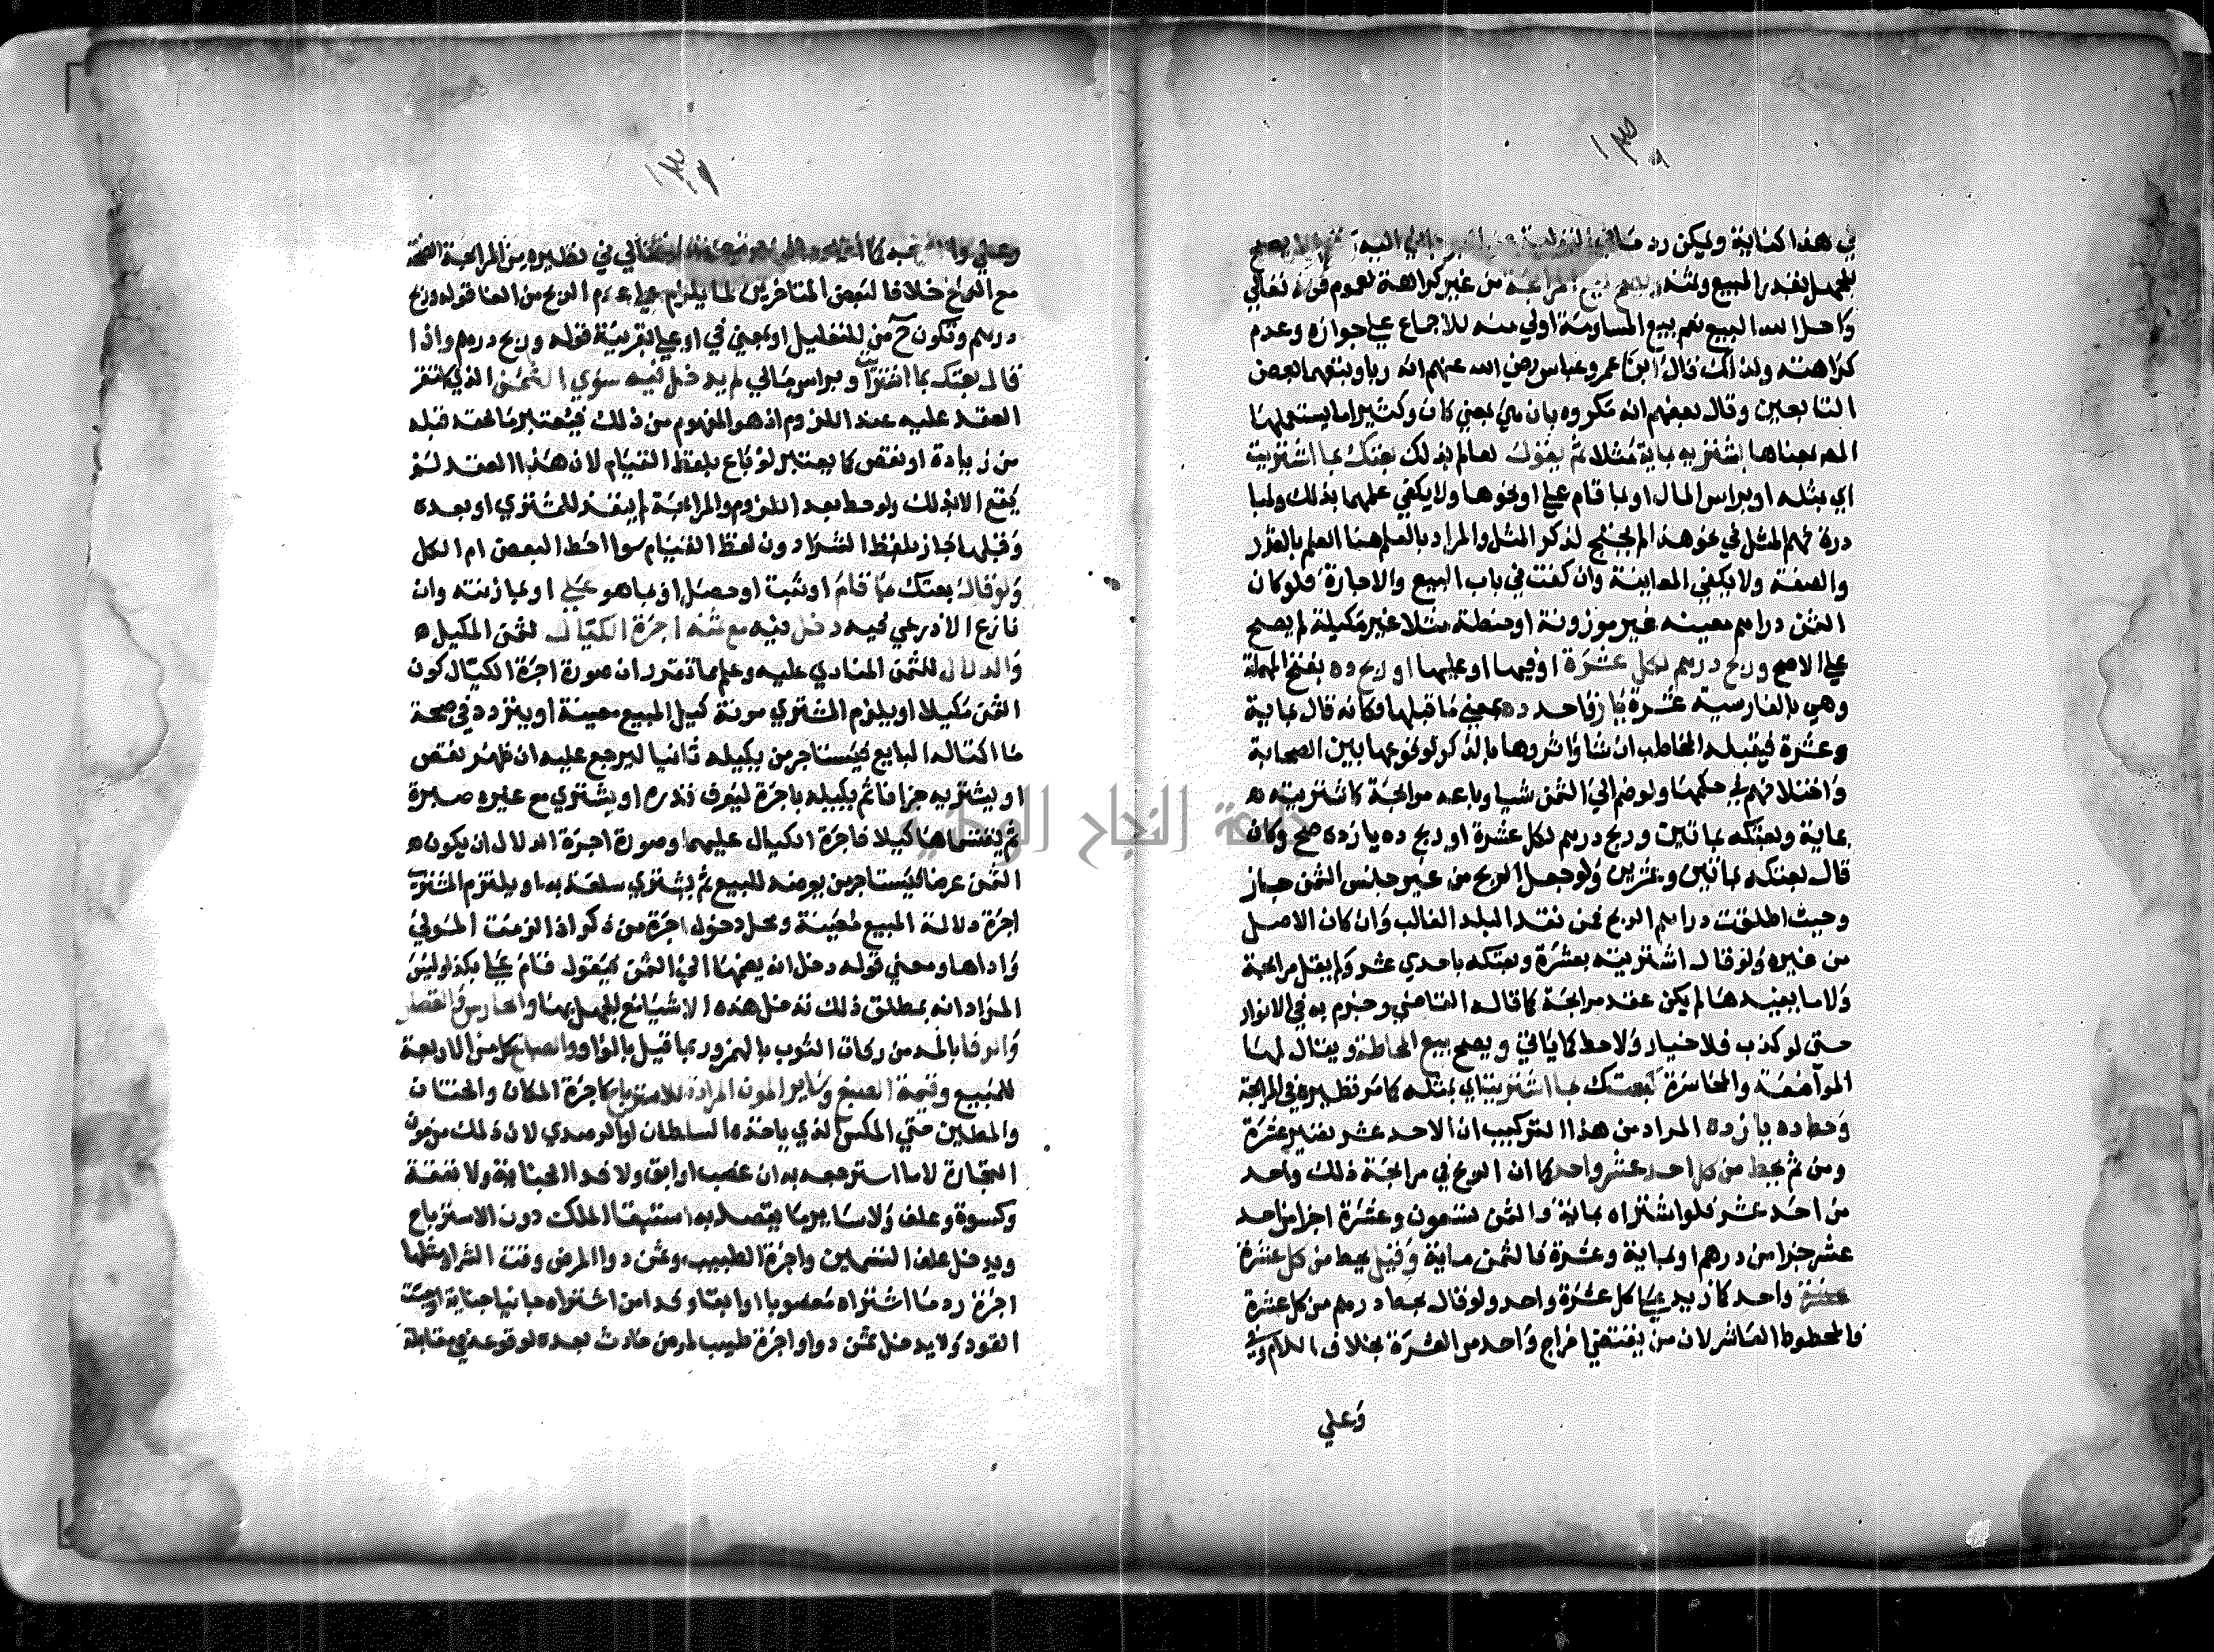 في هذا كناية ويمكن رد
بالجهل بقدر المبيع وثمنه من غير كراهة لعموم قوله تعالى
واحل الله البيع نعم بيع المساومة اولي منه للاجماع علي جوازه وعدم
كراهته ولذلك قال ابنا عمر وعباس رضي الله عنهم انه ربا وتبعهما بعض
التابعين وقال بعضهم انه مكروه بان هي بمعني كان وكثيرا ما يستعملها
المصم بمعناها يشتريه بماية مثلا ثم يقول لعالم بذلك بعتك بما اشتريت
اي بمثله او براس المال او بما قام علي او نحوها ولا يكفي علمهما بذلك ولمبا
درة فهم المثل في نحو هذا لم يحتج لذكر المثل والمراد بالعلم هنا العلم بالقدر
والصفة ولا يكفي المعاينة وان كفت في باب البيع والاجارة فلو كان
الثمن دراهم معينه غير موزونة او حنطة مثلا غير مكيلة لم يصح
علي الاصح وربح درهم لكل عشرة او فيها او عليها او ربح ده بفتح المهملة
وهي بالفارسية عشرة ياز واحد ده بمعني ما قبلها فكانه قال بماية
وعشرة فيقبله المخاطب ان شا واثروها بالذكر لوقوعها بين الصحابة
واختلافهم في حكمها ولو ضم الي الثمن شيا وباعه مرابحة كاشتريته
بماية وبعتكه بماتين وربح درهم لكل عشرة او ربح ده يازده صح وكان
قال بعتكه بماتين وعشرين ولو جعل الربح من غير جنس الثمن جاز
وحيث اطلقت دراهم الربح فمن نقد البلد الغالب وان كان الاصل
من غيره ولو قال اشتريته بعشرة وبعتكه باحدي عشر ولم يقل مرابحة
ولا ما يفيدها لم يكن عقد مرابحة كما قاله القاضي وجزم به في الانوار
حتى لو كذب فلا خيار ولا حط كما ياتي ويصح بيع المحاطة ويقال لها
المواضعة والمخاسرة كبعتك بما اشتريت اي بمثله كما مر نظيره في المرابحة
وحط ده يازده المراد من هذا التركيب ان الاحد عشر تصير عشرة
ومن ثم يحط من كل احد عشر واحد كما ان الربح في مرابحة ذلك واحد
من احد عشر فلو اشتراه بماية فالثمن تسعون وعشرة اجزا من احد
عشر جزا من درهم او بماية وعشرة فالثمن ماية وقيل يحط من كل عشرة
واحد كما زيد علي كل عشرة واحد ولو قال بحط درهم من كل عشرة
فالمحطوط العاشر لان من يقتضي اخراج واحد من العشرة بخلاف اللام وفي
وعلي
وعلي في نظيره من المرابحة الصحة
مع الربح خلافا لبعض المتاخرين لما يلزم عدم الربح من الغا قوله وربح
درهم وتكون ح من للتعليل او بمعني في او علي بقرينة قوله وربح درهم واذا
قال بعتك بما اشتريت او براس مالي لم يدخل فيه سوي الثمن الذي استقر
العقد عليه عند اللزوم اذ هو المفهوم من ذلك فيعتبر ما لحقه قبله
من زيادة او نقص كما يعتبر لو باع بلفظ القيام لان هذا العقد لم
يقع الا بذلك ولو حط بعد اللزوم والمرابحة لم يتعد للمشتري او بعده
وقبلها جاز بلفظ الشرا دون لفظ القيام سوا احط البعض ام الكل
ولو قال بعتك بما قام او ثبت او حصل او بما هو علي او بما زنته وان
نازع الاذرعي فيه دخل فيه مع ثمنه اجرة الكيال للثمن المكيل
والدلال للثمن المنادي عليه وعلم مما تقرر ان صورة اجرة الكيال كون
الثمن مكيلا او يلزم المشتري مونة كيل المبيع معينة او يتردد في صحة
ما اكتاله البايع فيستاجر من يكيله ثانيا ليرجع عليه ان ظهر نقص
او يشتريه جزافا ثم يكيله باجرة ليعرف قدره او يشتري مع غيره صبرة
ثم يقتسماها كيلا فاجرة الكيال عليهما وصورة اجرة الدلال ان يكون
الثمن عرضا فيستاجر من يعرضه للبيع ثم يشتري سلعة به او يلتزم المشتري
اجرة دلالة المبيع معينة ومحل دخول اجرة من ذكر اذا لزمت المولي
واداها ومعني قوله دخل انه يضمها الي الثمن فيقول قام علي بكذا وليس
المراد انه بمطلق ذلك تدخل هذه الاشيا مع الجهل بها والحارس والقصار
والرفا بالمد من رفات الثوب بالهمز وربما قيل بالواو والصباغ كل من الاربعة
للمبيع وقيمة الصبغ وساير المون المرادة للاسترباح كاجرة المكان والختان
والمطين حتي المكس الذي ياخذه السلطان او الرصدي لان ذلك من مون
التجارة لا ما استرجعه به ان غصب او ابق ولا فدا الجناية ولا نفقة
وكسوة وعلف ولا ساير ما يقصد به استبقا الملك دون الاسترباح
ويدخل علف التسمين واجرة الطبيب وثمن دوا المرض وقت الشرا ومثلها
اجرة رد ما اشتراه مغصوبا او ابقا وفدا من اشتراه جانيا جناية اوجبت
القود ولا يدخل ثمن دوا واجرة طبيب لمرض حادث بعده لوقوعه في مقابلة